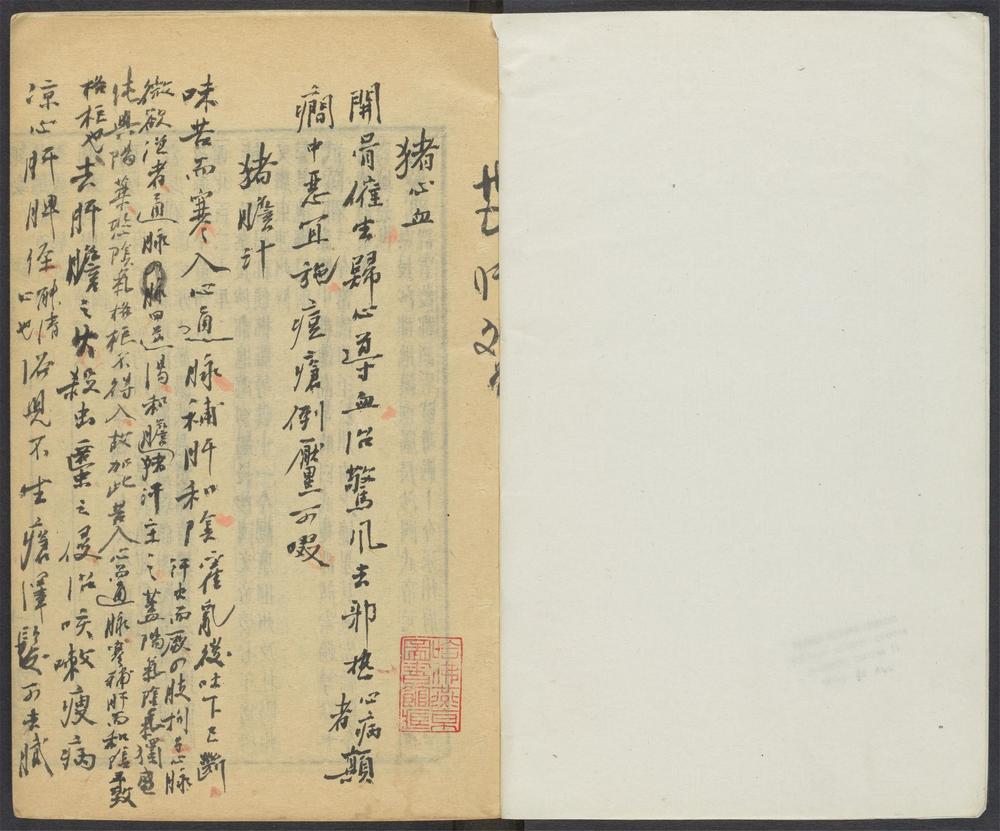 猪心血
開骨催生歸心導血治驚風去邪热心病顛者
癇中惡宜施痘瘡倒靨可啜
猪膽汁
味苦而寒入心通脉補肝和陰霍亂後吐下已斷
汗出而厥四肢拘急脉
微欲絕者通脉四逆湯和膽猪汗主之蓋陽氣
純與陽藥恐陰氣格柜不得入故加此苦入心而通脉寒補肝而和陰
格柜也去肝膽之火殺虫之侵治咳嗽瘦病
凉心肝脾治兒不生瘡澤髮可去膩
哈佛燕京圖書館